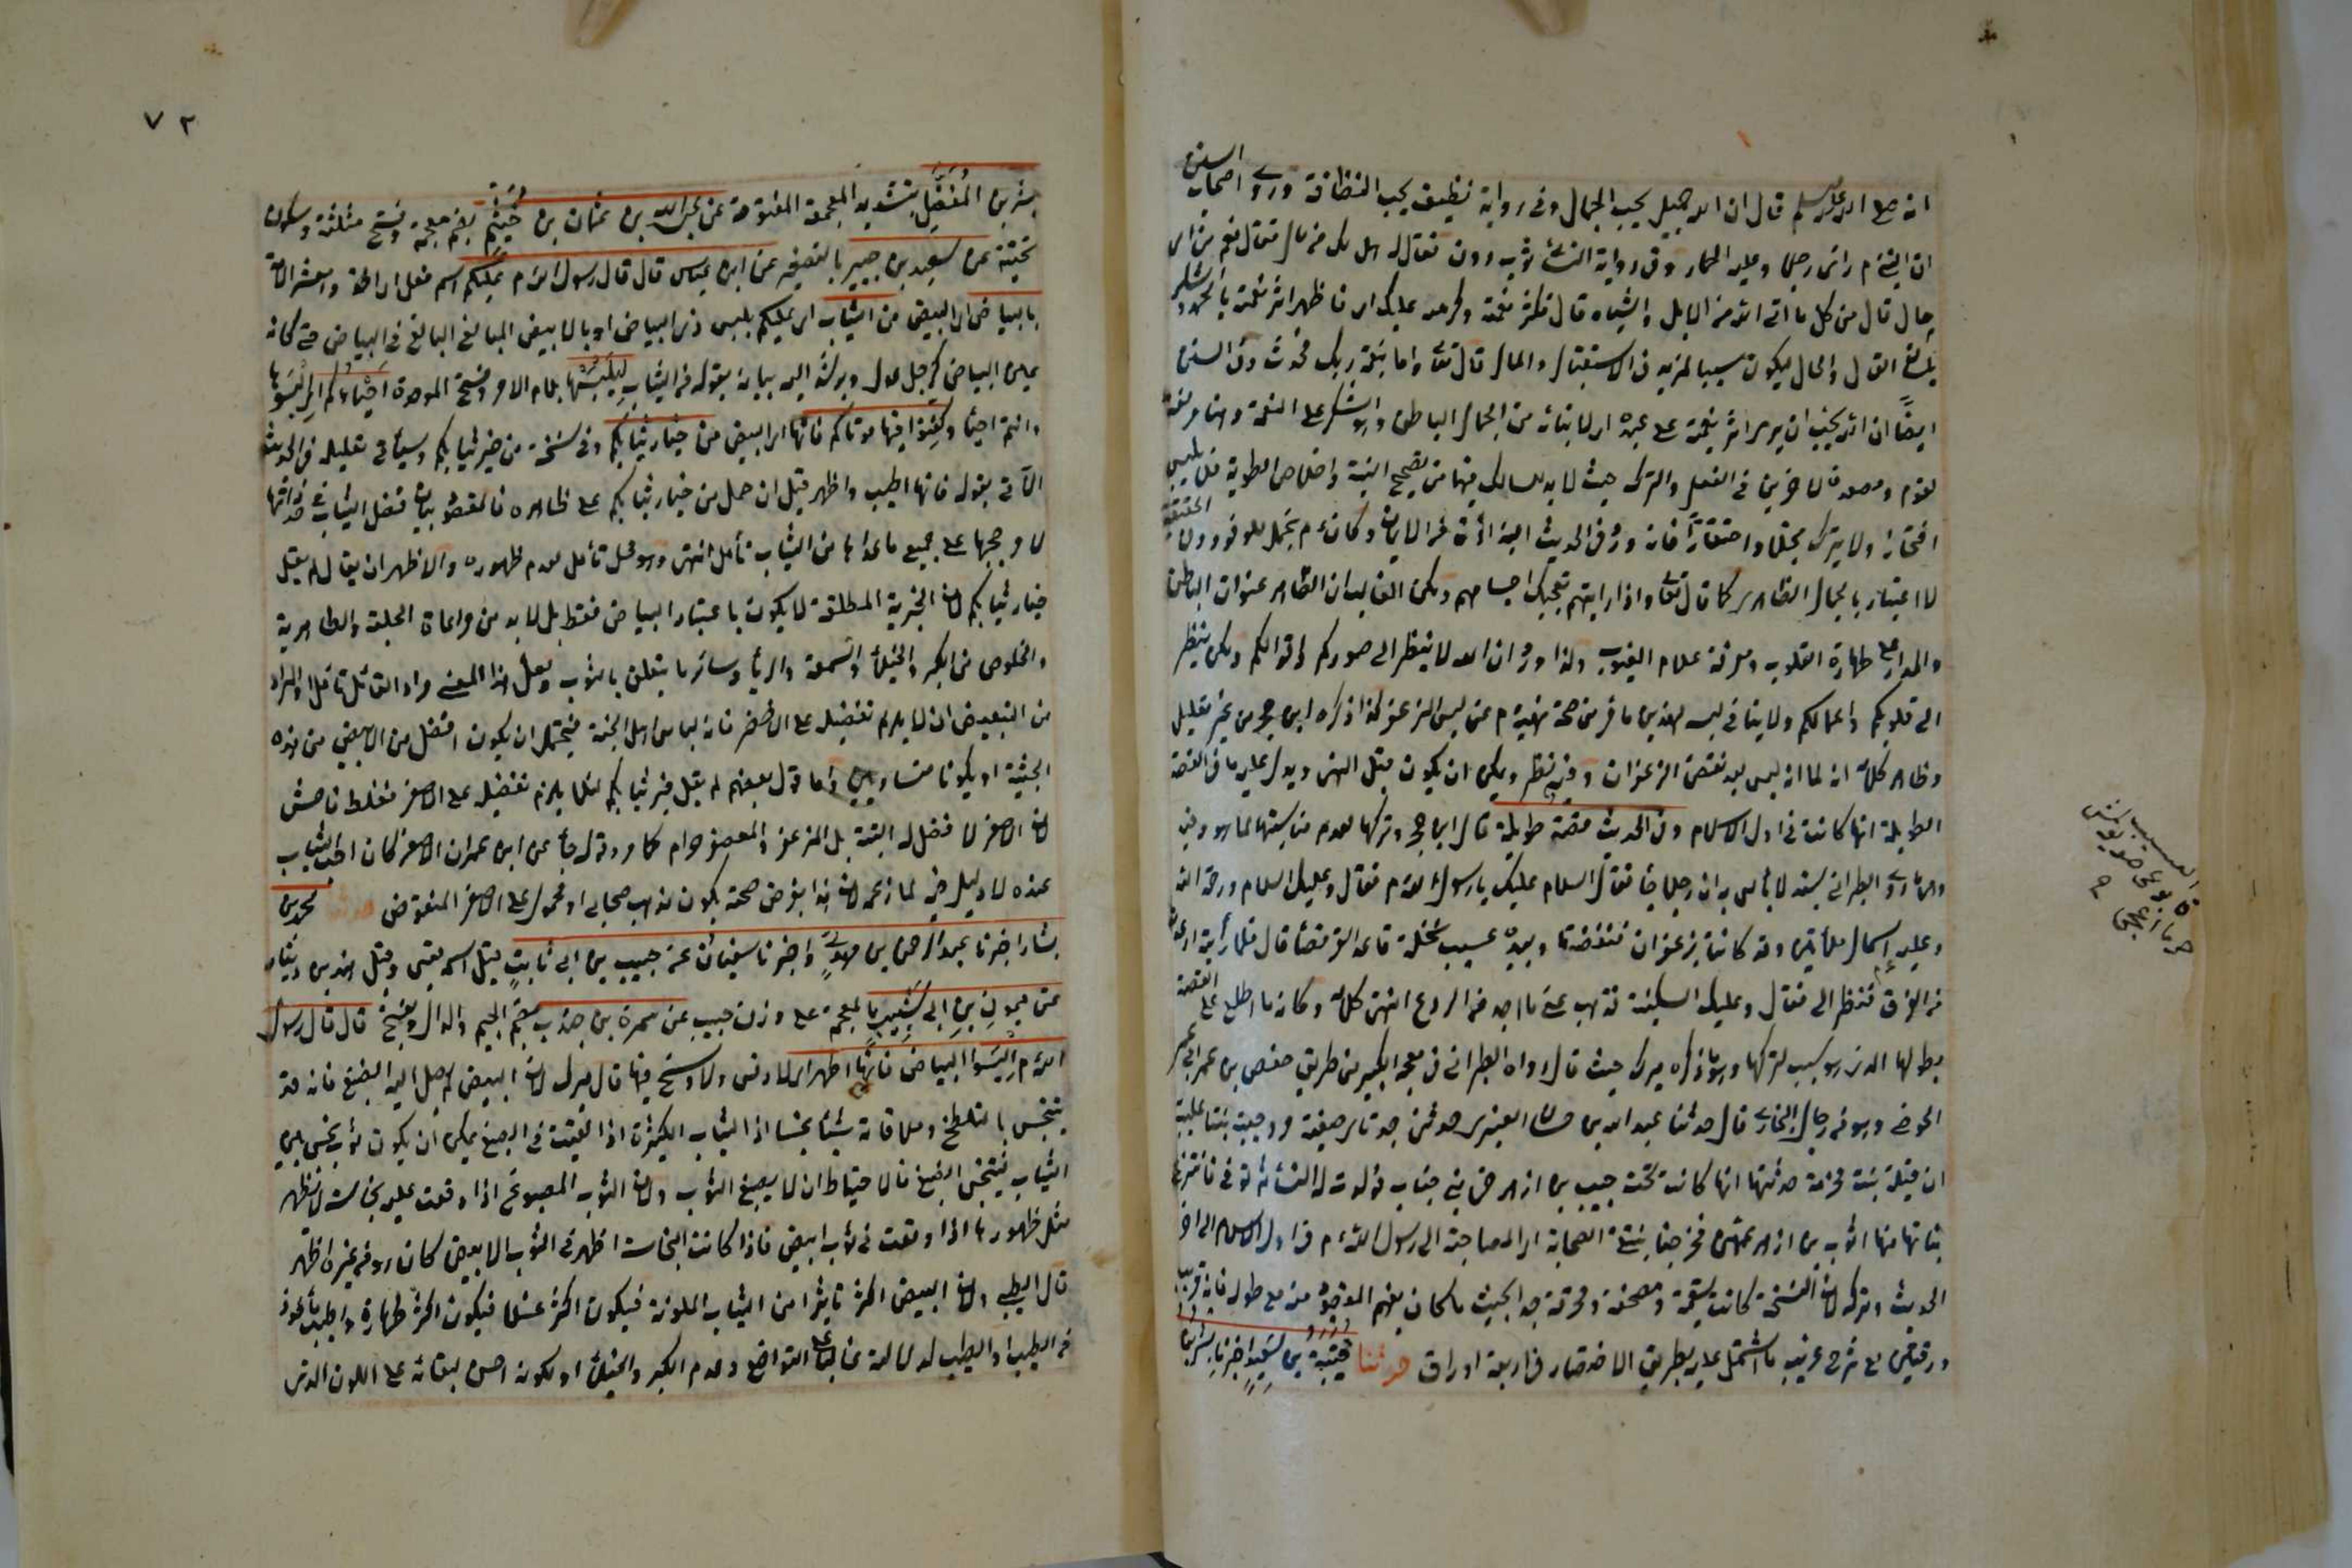 انه صلى الله عليه وسلم قال ان الله جميل يحب الجمال وفي رواية نظيف يحب النظافة وروى اصحاب السنن
ان النبي م رأى رجلا وعليه اطمار وفي رواية النسائي ثوب دون فقال له هل لك من مال فقال نعم من اي
مال قال من كل ما اتى الله من الابل والشياه قال فكثر نعمته وكرمه عليك اي فاظهر اثر نعمته بالحمد والشكر
بلسان القال والحال ليكون سببا لمزيد في الاستقبال والمال قال تعا واما بنعمة ربك فحدث وفي السنن
ايضا ان الله يحب ان يرى اثر نعمته على عبده اي لانبائه عن الجمال الباطن وهو الشكر على النعمة وهنا مزلقة
لقوم ومصعد لاخرين في الفعل والترك حيث لا بد للسالك فيها من تصحيح النية واخلاص الطوية فلا يلبس
افتخارا ولا يترك بخلا واحتقارا فانه ورد في الحديث البذاذة من الايمان وكان م يتجمل للوفود ولان الحقيقة
لا اعتبار بالجمال الظاهر كما قال تعا واذا رايتهم تعجبك اجسامهم ولكن الغالب ان الظاهر عنوان الباطن
والمدار على طهارة القلوب ومعرفة علام الغيوب ولذا ورد ان الله لا ينظر الى صوركم واقوالكم ولكن ينظر
الى قلوبكم واعمالكم ولا ينافي لبسه لهذين ما مر من صحة نهيه م عن لبس المزعفر كذا ذكره ابن حجر من غير تعليل
وظاهر كلامه انه لما انه لبس بعد نفض الزعفران وفيه نظر ويمكن ان يكون قبل النهي ويدل عليه ما في القصة
الطويلة انها كانت في اول الاسلام وفي الحديث قصة طويلة قال ابن حجر وتركها لعدم مناسبتها لما هو فيه
وهي ما روى الطبراني بسند لا بأس به ان رجلا جاء فقال السلام عليك يا رسول الله م فقال وعليك السلام ورحمة الله
وعليه اسمال ملأتين وقد كانتا بزعفران فنفضتا وبيده عسيب نخلة قاعد القرفصاء قال فلما رأيته ارعدت
من الفرق فنظر الي فقال وعليك السكينة فذهب عني ما اجد من الروع انتهى كلامه وكانه ما اطلع على القصة
بطولها الذي هو سبب لتركها وهو ما ذكره ميرك حيث قال رواه الطبراني في معجمه الكبير من طريق حفص بن عمر ابي عمر
الحوضي وهو من رجال البخاري قال حدثنا عبد الله بن حسان العنبري حدثتني جدتاي صفية ودحيبة بنتا عليبة
ان قيلة بنت مخرمة حدثتهما انها كانت تحت حبيب بن ازهر من بني جناب فولدت له النساء ثم توفي فانتزع
بناتها منها اثوب بن ازهر عمهن فخرجت تبتغي الصحابة اي المصاحبة الى رسول الله م في اول الاسلام الى اخر
الحديث وتركه لان النسخة كانت سقيمة ومصحفة ومحرفة جدا بحيث ما كان يفهم المقصود منه مع طوله فانه قريب
ورقتين مع شرح غريب ما اشتمل عليه بطريق الاختصار في اربعة اوراق حدثنا قتيبة بن سعيد اخبرنا بشر بن
العسيب
٧٢
بشر بن المُفَضَّل بتشديد المعجمة المفتوحة عن عبد الله بن عثمان بن خُثَيْم بضم معجمة وفتح مثلثة وسكون
تحتية عن سعيد بن جبير بالتصغير عن ابن عباس قال قال رسول الله م عليكم اسم فعل اي الزموا
بالبياض اي الابيض من الثياب اي عليكم بلبس ذي البياض او بالابيض المبالغ البالغ في البياض حتى كانه
عين البياض كرجل عدل ويرشد اليه بيانه بقوله من الثياب ليلبسها بلام الامر وفتح الموحدة احياؤكم اي البسوها
وانتم احياء وكفنوا فيها موتاكم فانها اي البيض من خيار ثيابكم وفي نسخة من خير ثيابكم وسيأتي تعليله في الحديث
الآتي بقوله فانها اطيب واطهر قيل ان حمل من خيار ثيابكم على ظاهره فالمقصود بيان فضل الثياب في ذواتها
لا ترجيحها على جميع ما عداها من الثياب تأمل انتهى وهو محل تأمل لعدم ظهوره والاظهر ان يقال لم يقل
خيار ثيابكم لان الخيرية المطلقة لا يكون باعتبار البياض فقط بل لا بد من مراعاة الحلية والطاهرية
والخلوص من الكبر والخيلاء والسمعة والرياء وسائر ما يتعلق بالثوب ولعل هذا المعنى مراد القائل تأمل او المراد
من التبعيض ان لا يلزم تفضيله على الاخضر فانه لباس اهل الجنة فيحتمل ان يكون افضل من الابيض من هذه
الحيثية او يكونا متساويين واما قول بعضهم لم يقل خير ثيابكم لئلا يلزم تفضيله على الاصفر فغلط فاحش
لان الاصفر لا فضل له البتة بل المزعفر والمعصفر حرام كما مر وقد جاء عن ابن عمران الاصفر كان احب الثياب
عنده لا دليل فيه لما زعمه لان هذا بفرض صحته يكون مذهب صحابي او محمول على الاصفر المنفوض حدثنا محمد بن
بشار اخبرنا عبد الرحمن بن مهدي واخبرنا سفيان عن حبيب بن ابي ثابت قيل اسمه قيس وقيل هند بن دينار
عن ميمون بن ابي شبيب بالمعجمة على وزن حبيب عن سمرة بن جندب بضم الجيم والدال وبفتح قال قال رسول
الله م البسوا البياض فانها اطهر اي لا دنس ولا وسخ فيها قال ميرك لان البيض لم يصل اليه الصبغ فانه قد
يتنجس بالتلطخ وملاقاته شيئا نجسا اذ الثياب الكثيرة اذا القيت في الصبغ يمكن ان يكون ثوب نجس بين
الثياب فيتنجس الصبغ فالاحتياط ان لا يصبغ الثوب ولان الثوب المصبوغ اذا وقعت عليه نجاسة لا تظهر
مثل ظهورها اذا وقعت في ثوب ابيض فاذا كانت النجاسة اظهر في الثوب الابيض كان هو من غيره اطهر
قال الطيبي ولان البيض اكثر تاثرا من الثياب الملونة فيكون اكثر غسلا فيكون اكثر طهارة واطيب مأخوذ
من الطيب او الطيب له لدلالته غالبا على التواضع وعدم الكبر والخيلاء او لكونه احسن لبقائه على اللون الذي